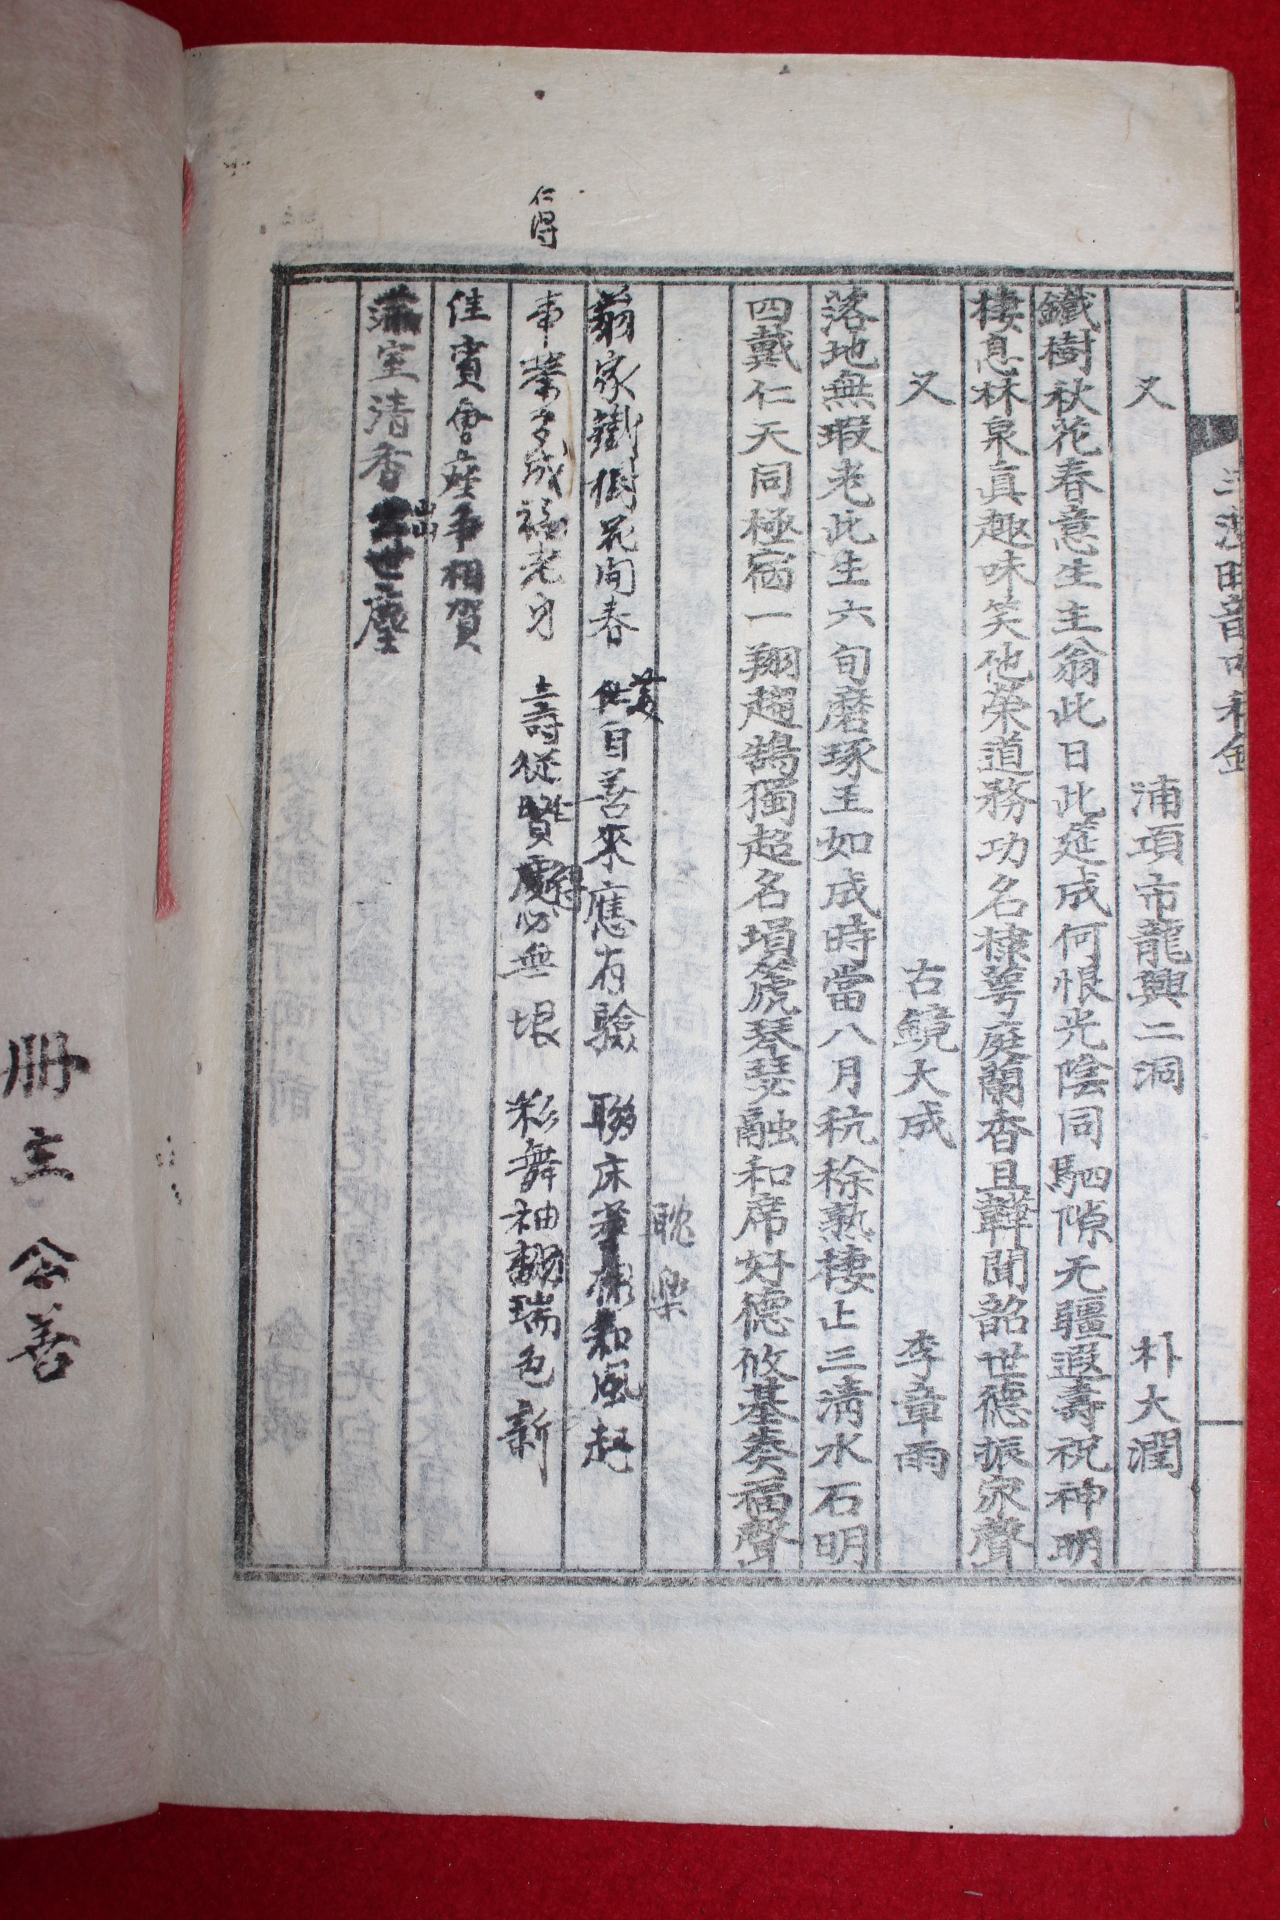 又 浦項市龍興二洞 朴大潤
鐵樹秋花春意生主翁此日此莚成何恨光陰同駟隙无疆遐壽祝神明
棲息林泉眞趣味笑他榮道務功名棣萼庭蘭香且韡聞韶世德振家聲
又 古鏡大成 李章雨
落地無瑕老此生六旬磨琢玉如成時當八月秔稌熟棲上三淸水石明
四戴仁天同極宿一翔趨鵠獨超名塤箎琴瑟融和席好德攸基奏福聲
耽樂
翁家鐵樹花開春 自善來應有驗 聯床 和風起
仁得
老身 壽從 必無垠 彩舞袖翻瑞色新
佳賓會座爭相賀
滿室清香 世塵
冊主 公善